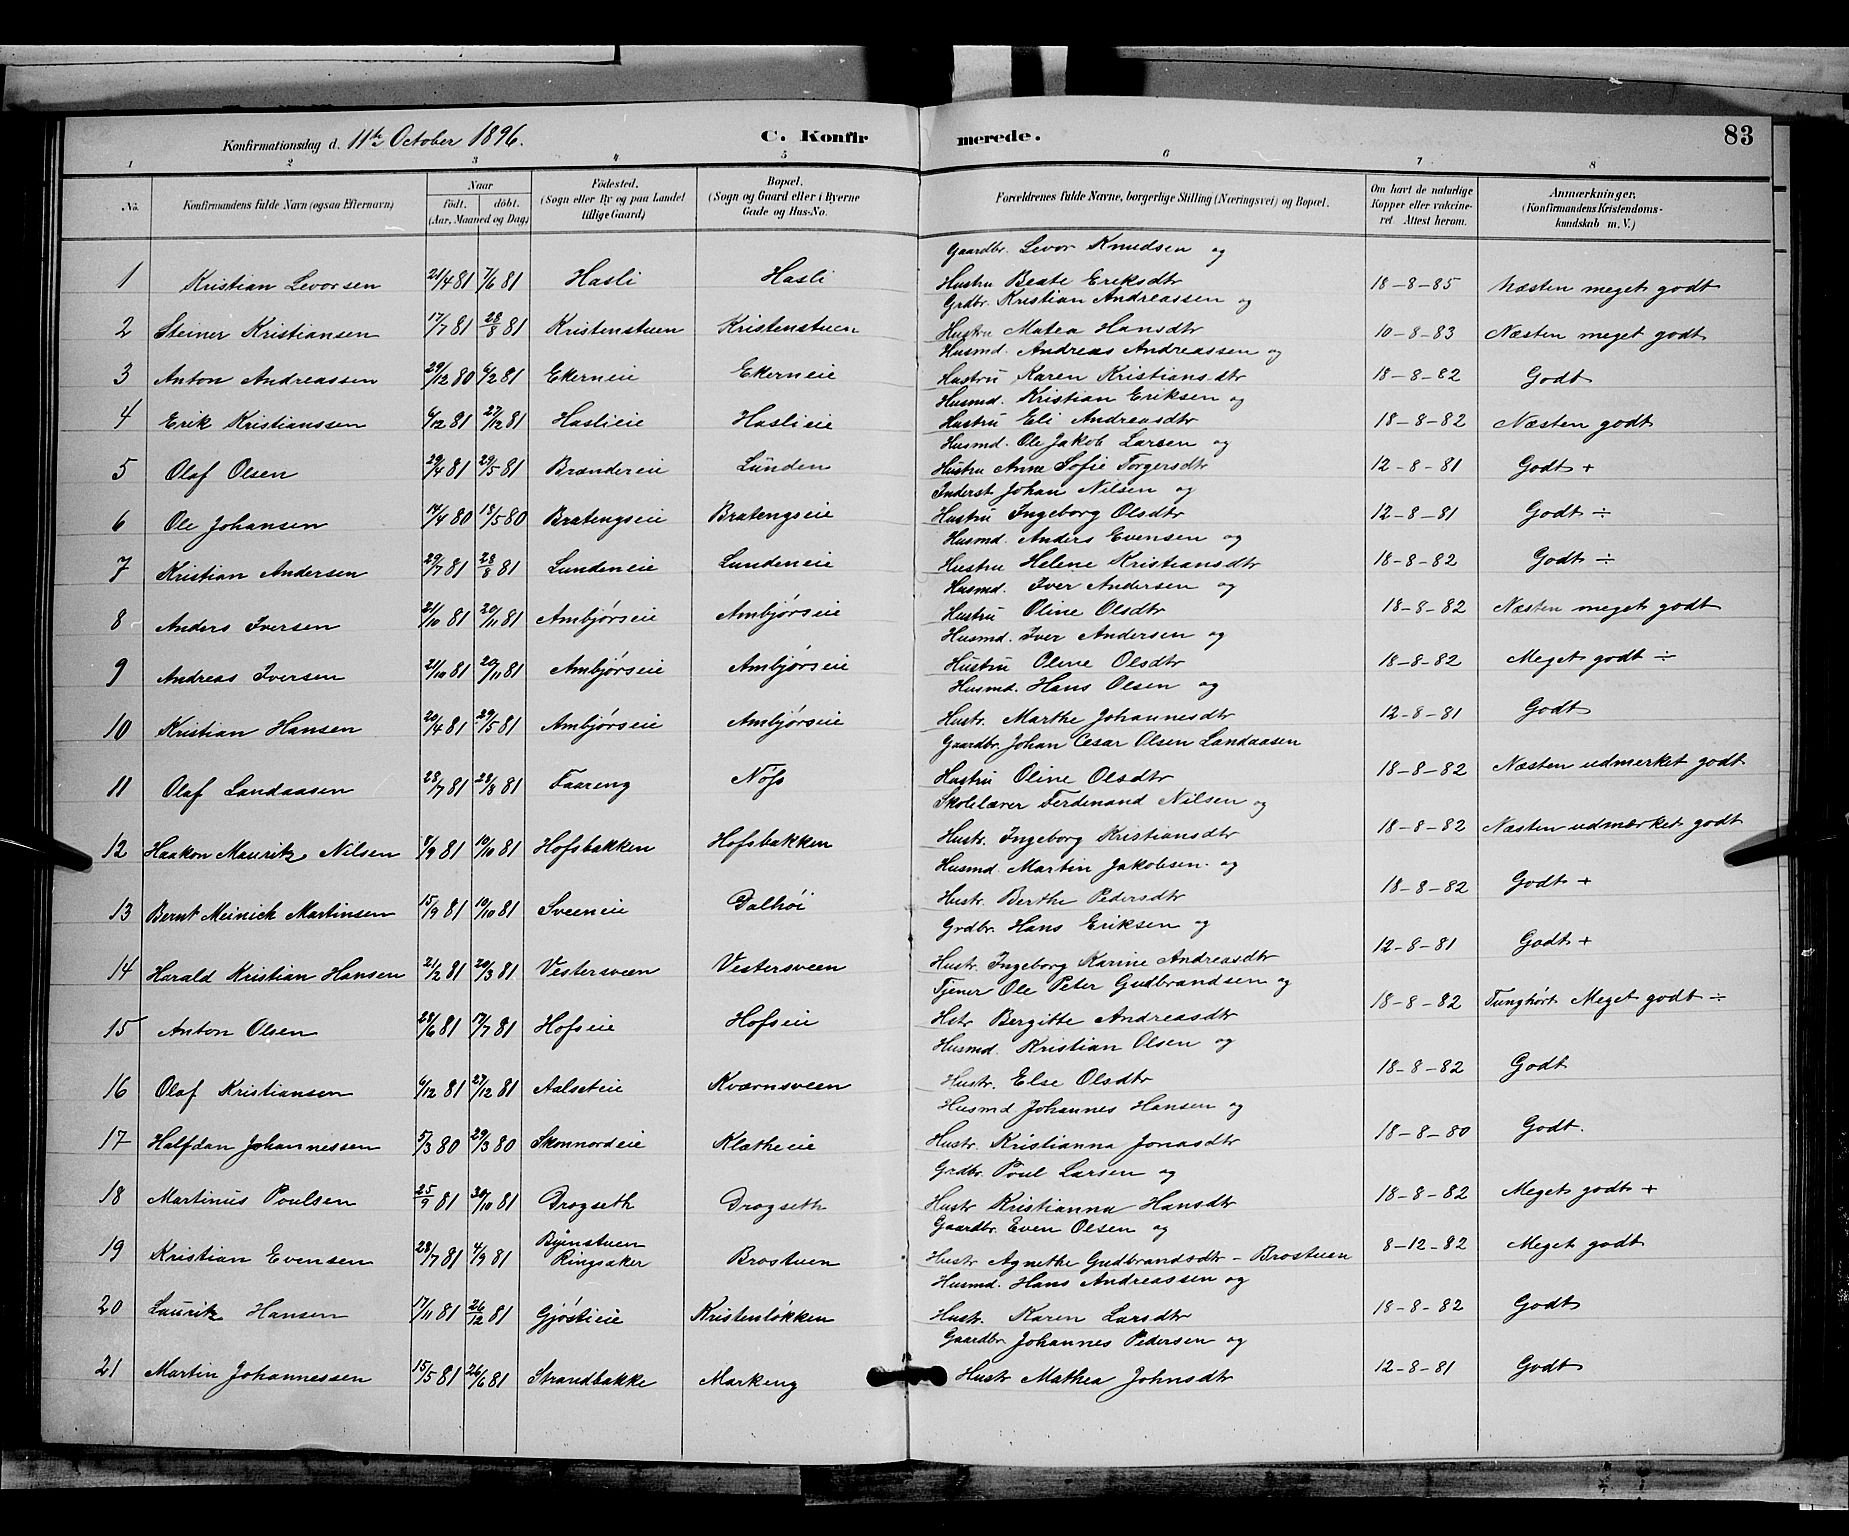 Konfirmationsdag d. 11te October 1896.
C. Konfirmerede.
83
1 2 3 4 5 6 7 8
No. Konfirmandens fulde Navn (ogsaa Efternavn) Naar født. døbt. (Aar, Maaned og Dag) Fødested. (Sogn eller By og paa Landet tillige Gaard) Bopæl. (Sogn og Gaard eller i Byerne Gade og Hus-No. Forældrenes fulde Navne, borgerlige Stilling (Næringsvei) og Bopæl. Om havt de naturlige Kopper eller vakcineret. Attest herom. Anmærkninger. (Konfirmandens Kristendomskundskab m. V.)
Gaardbr. Levor Knudsen og
1 Kristian Levorsen 21/4 81 7/6 81 Hasli Hasli Hustru Beate Eriksdtr 18-8-85 Næsten meget godt
Grdbr. Kristian Andreassen og
2 Steiner Kristiansen 17/7 81 28/8 81 Kristenstuen Kristenstuen Hustru Matea Hansdtr 10-8-83 Næsten meget godt
Husmd. Andreas Andreassen og
3 Anton Andreassen 29/12 80 6/2 81 Ekerneie Ekerneie Hustru Karen Kristiansdtr 18-8-82 Godt
Husmd. Kristian Eriksen og
4 Erik Kristianssen 6/12 81 27/12 81 Haslieie Haslieie Hustru Eli Andreasdtr 18-8-82 Næsten godt
Husmd. Ole Jakob Larsen og
5 Olaf Olsen 29/4 81 29/5 81 Brændereie Lunden Hustru Anne Sofie Torgersdtr 12-8-81 Godt +
Inderst Johan Nilsen og
6 Ole Johansen 14/4 80 18/5 80 Bratengseie Bratengseie Hustru Ingeborg Olsdtr 12-8-81 Godt ÷
Husmd. Anders Evensen og
7 Kristian Andersen 29/7 81 28/8 81 Lundeneie Lundeneie Hustru Helene Kristiansdtr 18-8-82 Godt ÷
Husmd. Iver Andersen og
8 Anders Iversen 21/10 81 20/11 81 Ambjørseie Ambjørseie Hustru Oline Olsdtr 18-8-82 Næsten meget godt
Husmd. Iver Andersen og
9 Andreas Iversen 21/10 81 20/11 81 Ambjørseie Ambjørseie Hustru Oline Olsdtr 18-8-82 Meget godt ÷
Husmd. Hans Olsen og
10 Kristian Hansen 20/4 81 29/5 81 Ambjørseie Ambjørseie Hustr. Marthe Johannesdtr 12-8-81 Godt
Gaardbr. Johan Cesar Olsen Landaasen
11 Olaf Landaasen 23/7 81 28/8 81 Faareng Nøss Hustru Oline Olsdtr 18-8-82 Næsten udmerket godt
Skolelærer Ferdinand Nilsen og
12 Haakon Mauritz Nilsen 4/9 81 10/10 81 Hofsbakken Hofsbakken Hustr. Ingeborg Kristiansdtr 18-8-82 Næsten udmærket godt
Husmd. Martin Jakobsen og
13 Bernt Meinich Martinsen 15/9 81 10/10 81 Sveeneie Dalhøi Hustr. Berthe Pedersdtr 18-8-82 Godt +
Grdbr. Hans Eriksen og
14 Harald Kristian Hansen 21/2 81 20/3 81 Vestersveen Vestersveen Hustr. Ingeborg Karine Andreasdtr 12-8-81 Godt +
Tjener Ole Peter Gudbrandsen og
15 Anton Olsen 28/6 81 17/7 81 Hofseie Hofseie Hstr Bergitte Andreasdtr 18-8-82 Tunghørt Meget godt ÷
Husmd. Kristian Olsen og
16 Olaf Kristiansen 6/12 81 27/12 81 Aalseteie Kværnsveen Hustr. Else Olsdtr 18-8-82 Godt
Husmd Johannes Hansen og
17 Halfdan Johannessen 5/3 80 29/3 80 Skonnordeie Klætheie Hustr. Kristianna Jonasdtr 18-8-80 Godt.
Grdbr. Poul Larsen og
18 Martinus Poulsen 25/9 81 30/10 81 Drogseth Drogseth Hustr Kristianna Hansdtr 18-8-82 Meget godt +
Gaardbr Even Olsen og
19 Kristian Evensen 28/7 81 4/9 81 Bjønstuen Ringsaker Brostuen Hustr Agnethe Gudbrandsdtr - Brostuen 8-12-82 Meget godt
Husmd. Hans Andreassen og
20 Lauritz Hansen 17/11 81 26/12 81 Gjøstieie Kristenløkken Hustr. Karen Larsdtr 18-8-82 Godt
Gaardbr Johannes Pedersen og
21 Martin Johannessen 15/5 81 26/6 81 Strandbakke Markeng Hustr Mathea Johnsdtr 12-8-81 Godt